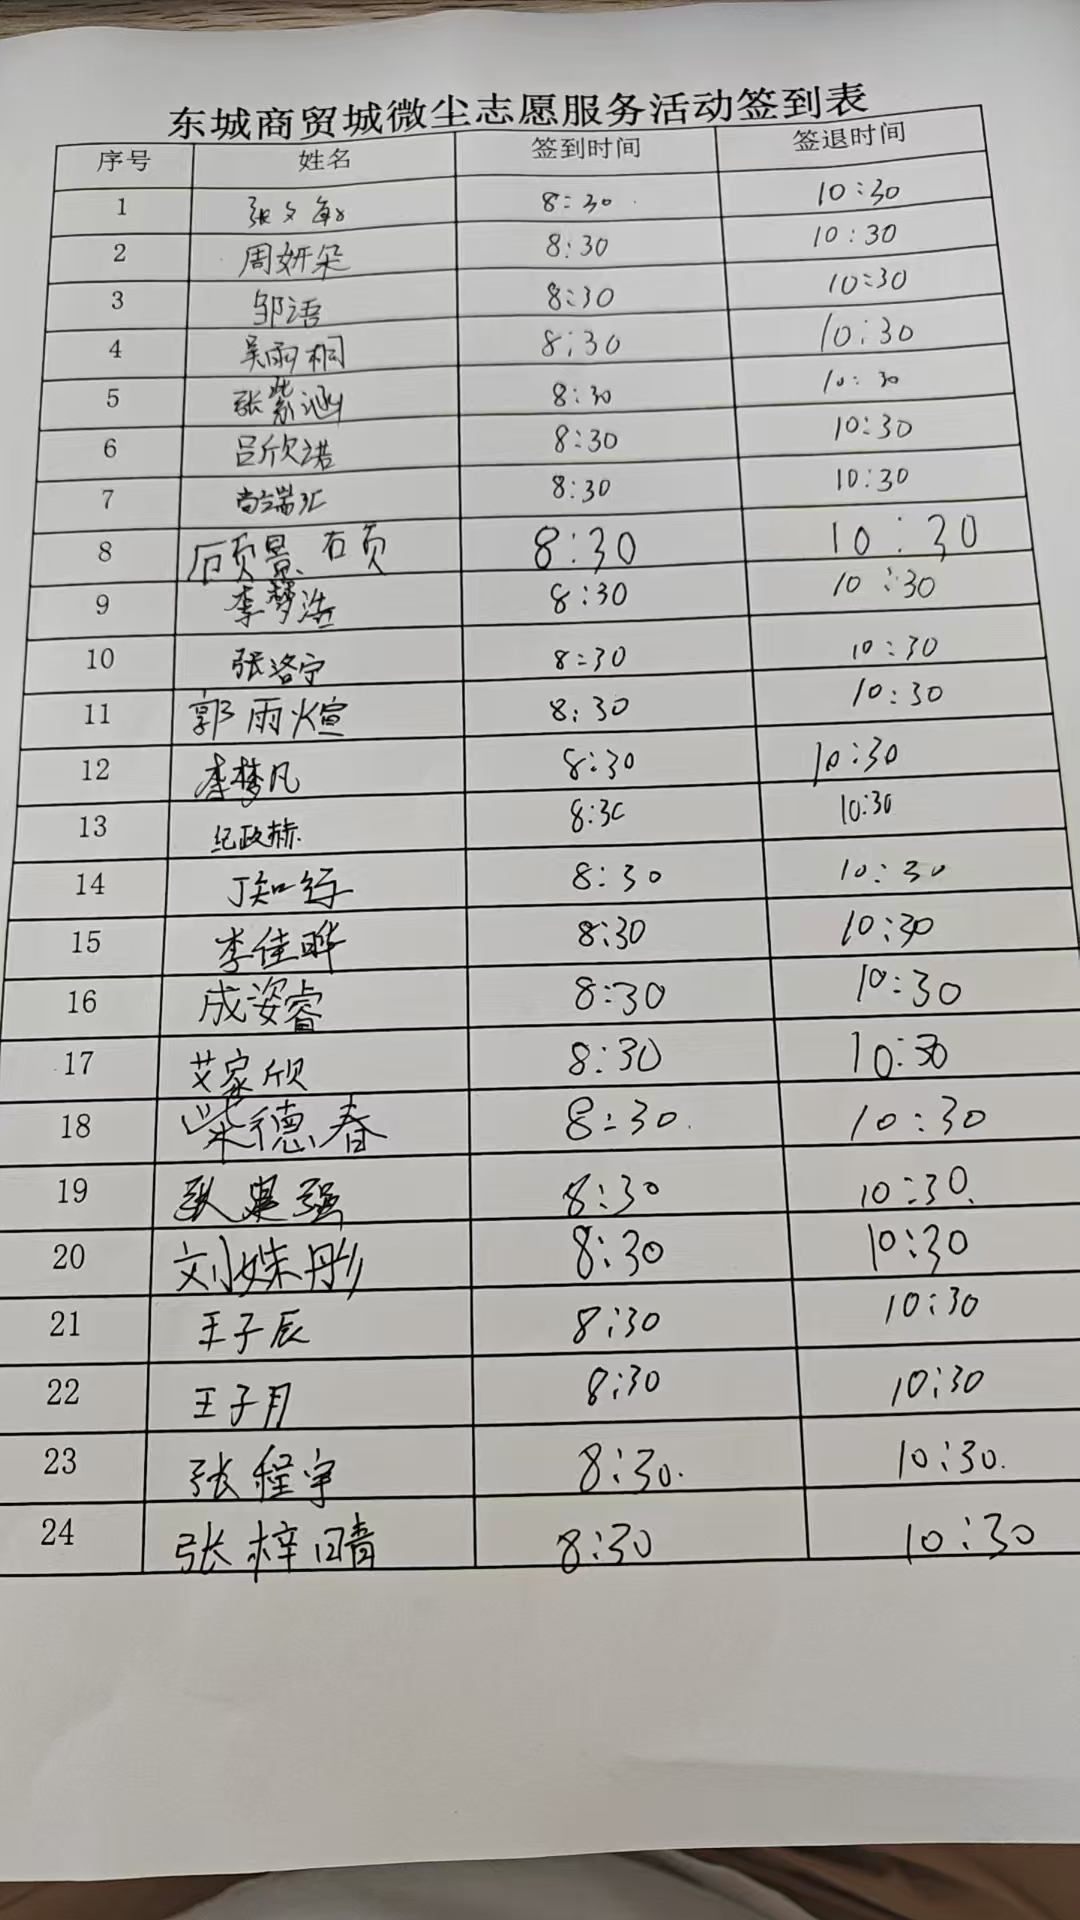 东城商贸城微尘志愿服务活动签到表
序号 姓名 签到时间 签退时间
1 张文敏 8:30 10:30
2 周妍朵 8:30 10:30
3 邹语 8:30 10:30
4 吴雨桐 8:30 10:30
5 张紫涵 8:30 10:30
6 吕欣诺 8:30 10:30
7 尚端汇 8:30 10:30
8 8:30 10:30
9 李梦浩 8:30 10:30
10 张洛宁 8:30 10:30
11 郭雨煊 8:30 10:30
12 李梦凡 8:30 10:30
13 纪政赫 8:30 10:30
14 丁知行 8:30 10:30
15 李佳晔 8:30 10:30
16 成姿睿 8:30 10:30
17 艾家欣 8:30 10:30
18 柴德春 8:30 10:30
19 耿建强 8:30 10:30
20 刘姝彤 8:30 10:30
21 王子辰 8:30 10:30
22 王子月 8:30 10:30
23 张程宇 8:30 10:30
24 张梓晴 8:30 10:30